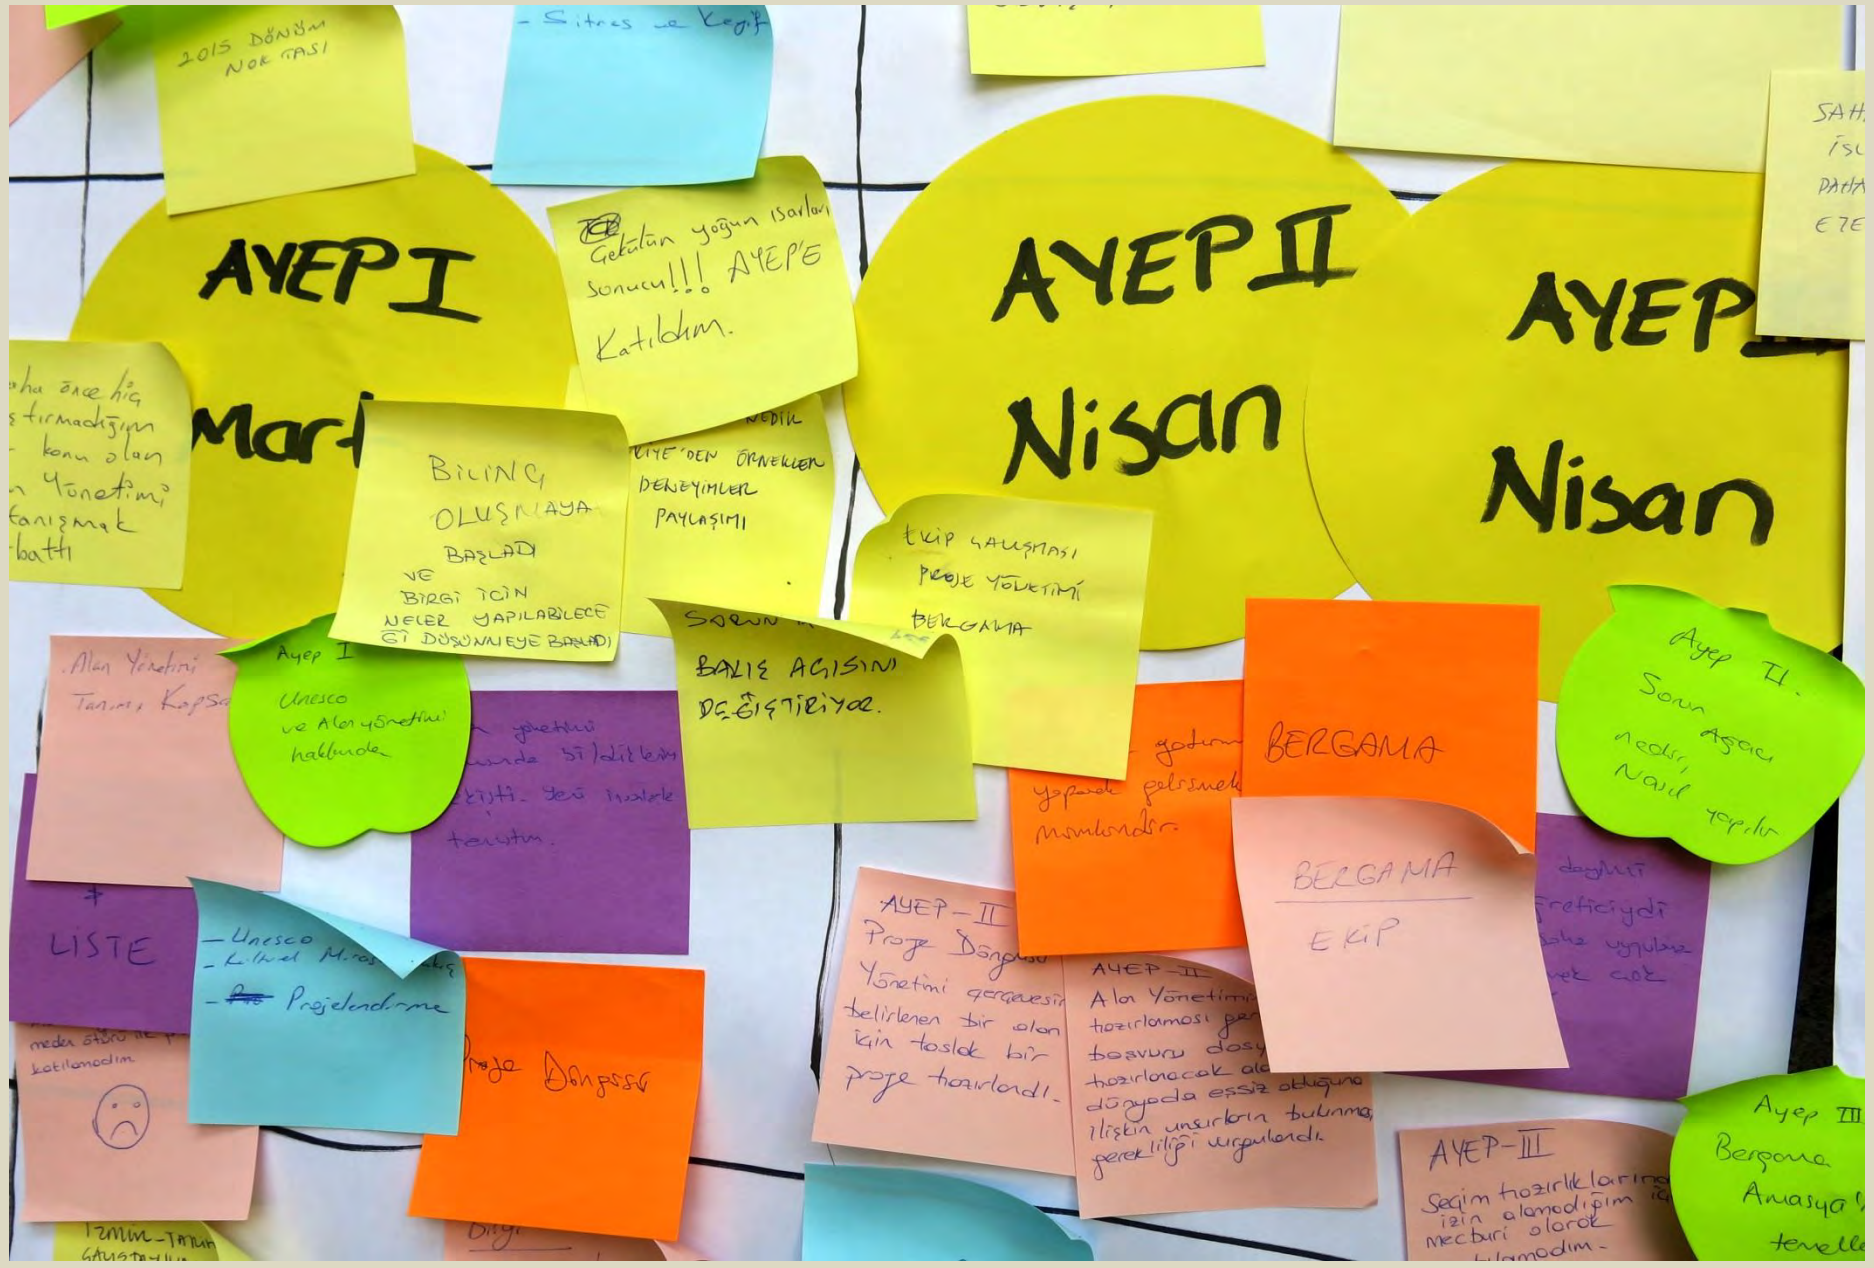 2015 DÖNÜM
NOKTASI
- Sitres ve Keyif
SAH
PAHA
AYEP I
Mart
Çekülün yoğun ısrarları
sonucu!!! AYEP'E
Katıldım.
AYEP II
Nisan
AYEP
Nisan
aha önce hiç
ştırmadığım
konu olan
n Yönetimi
tanışmak
battı
BİLİNÇ
OLUŞMAYA
BAŞLADI
VE
BİRGİ İÇİN
NELER YAPILABİLECE
Ğİ DÜŞÜNMEYE BAŞLADI
NEDİR
KİYE'DEN ÖRNEKLER
DENEYİMLER
PAYLAŞIMI
EKİP ÇALIŞMASI
PROJE YÖNETİMİ
BERGAMA
SORUN
BAKIŞ AÇISINI
DEĞİŞTİRİYOR.
Alan Yönetimi
Tanımı, Kapsa
Ayep I
Unesco
ve Alan yönetimi
hakkında
yönetimi
tanıştım.
yaparak gelişmek
mümkündür.
BERGAMA
BERGAMA
EKİP
Ayep II.
Sorun Ağacı
nedir,
Nasıl
yapılır
LİSTE
- Unesco
- Kültürel Miras
- Projelendirme
katılamadım.
Proje Döngüsü
AYEP-II
Proje Döngüsü
Yönetimi çerçevesin
belirlenen bir alan
için taslak bir
proje hazırlandı.
AYEP-II
Alan Yönetimi
hazırlaması ger
başvuru dosy
hazırlanacak ala
dünyada eşsiz olduğuna
ilişkin unsurların bulunması
gerekliliği vurgulandı.
AYEP-III
Seçim hazırlıklarında
izin alamadığım iç
mecburi olarak
tılamadım.
Ayep III
Bergama
Amasya'
temelle
İZMİR-TARİH
ÇALIŞTAYI
Bilgi